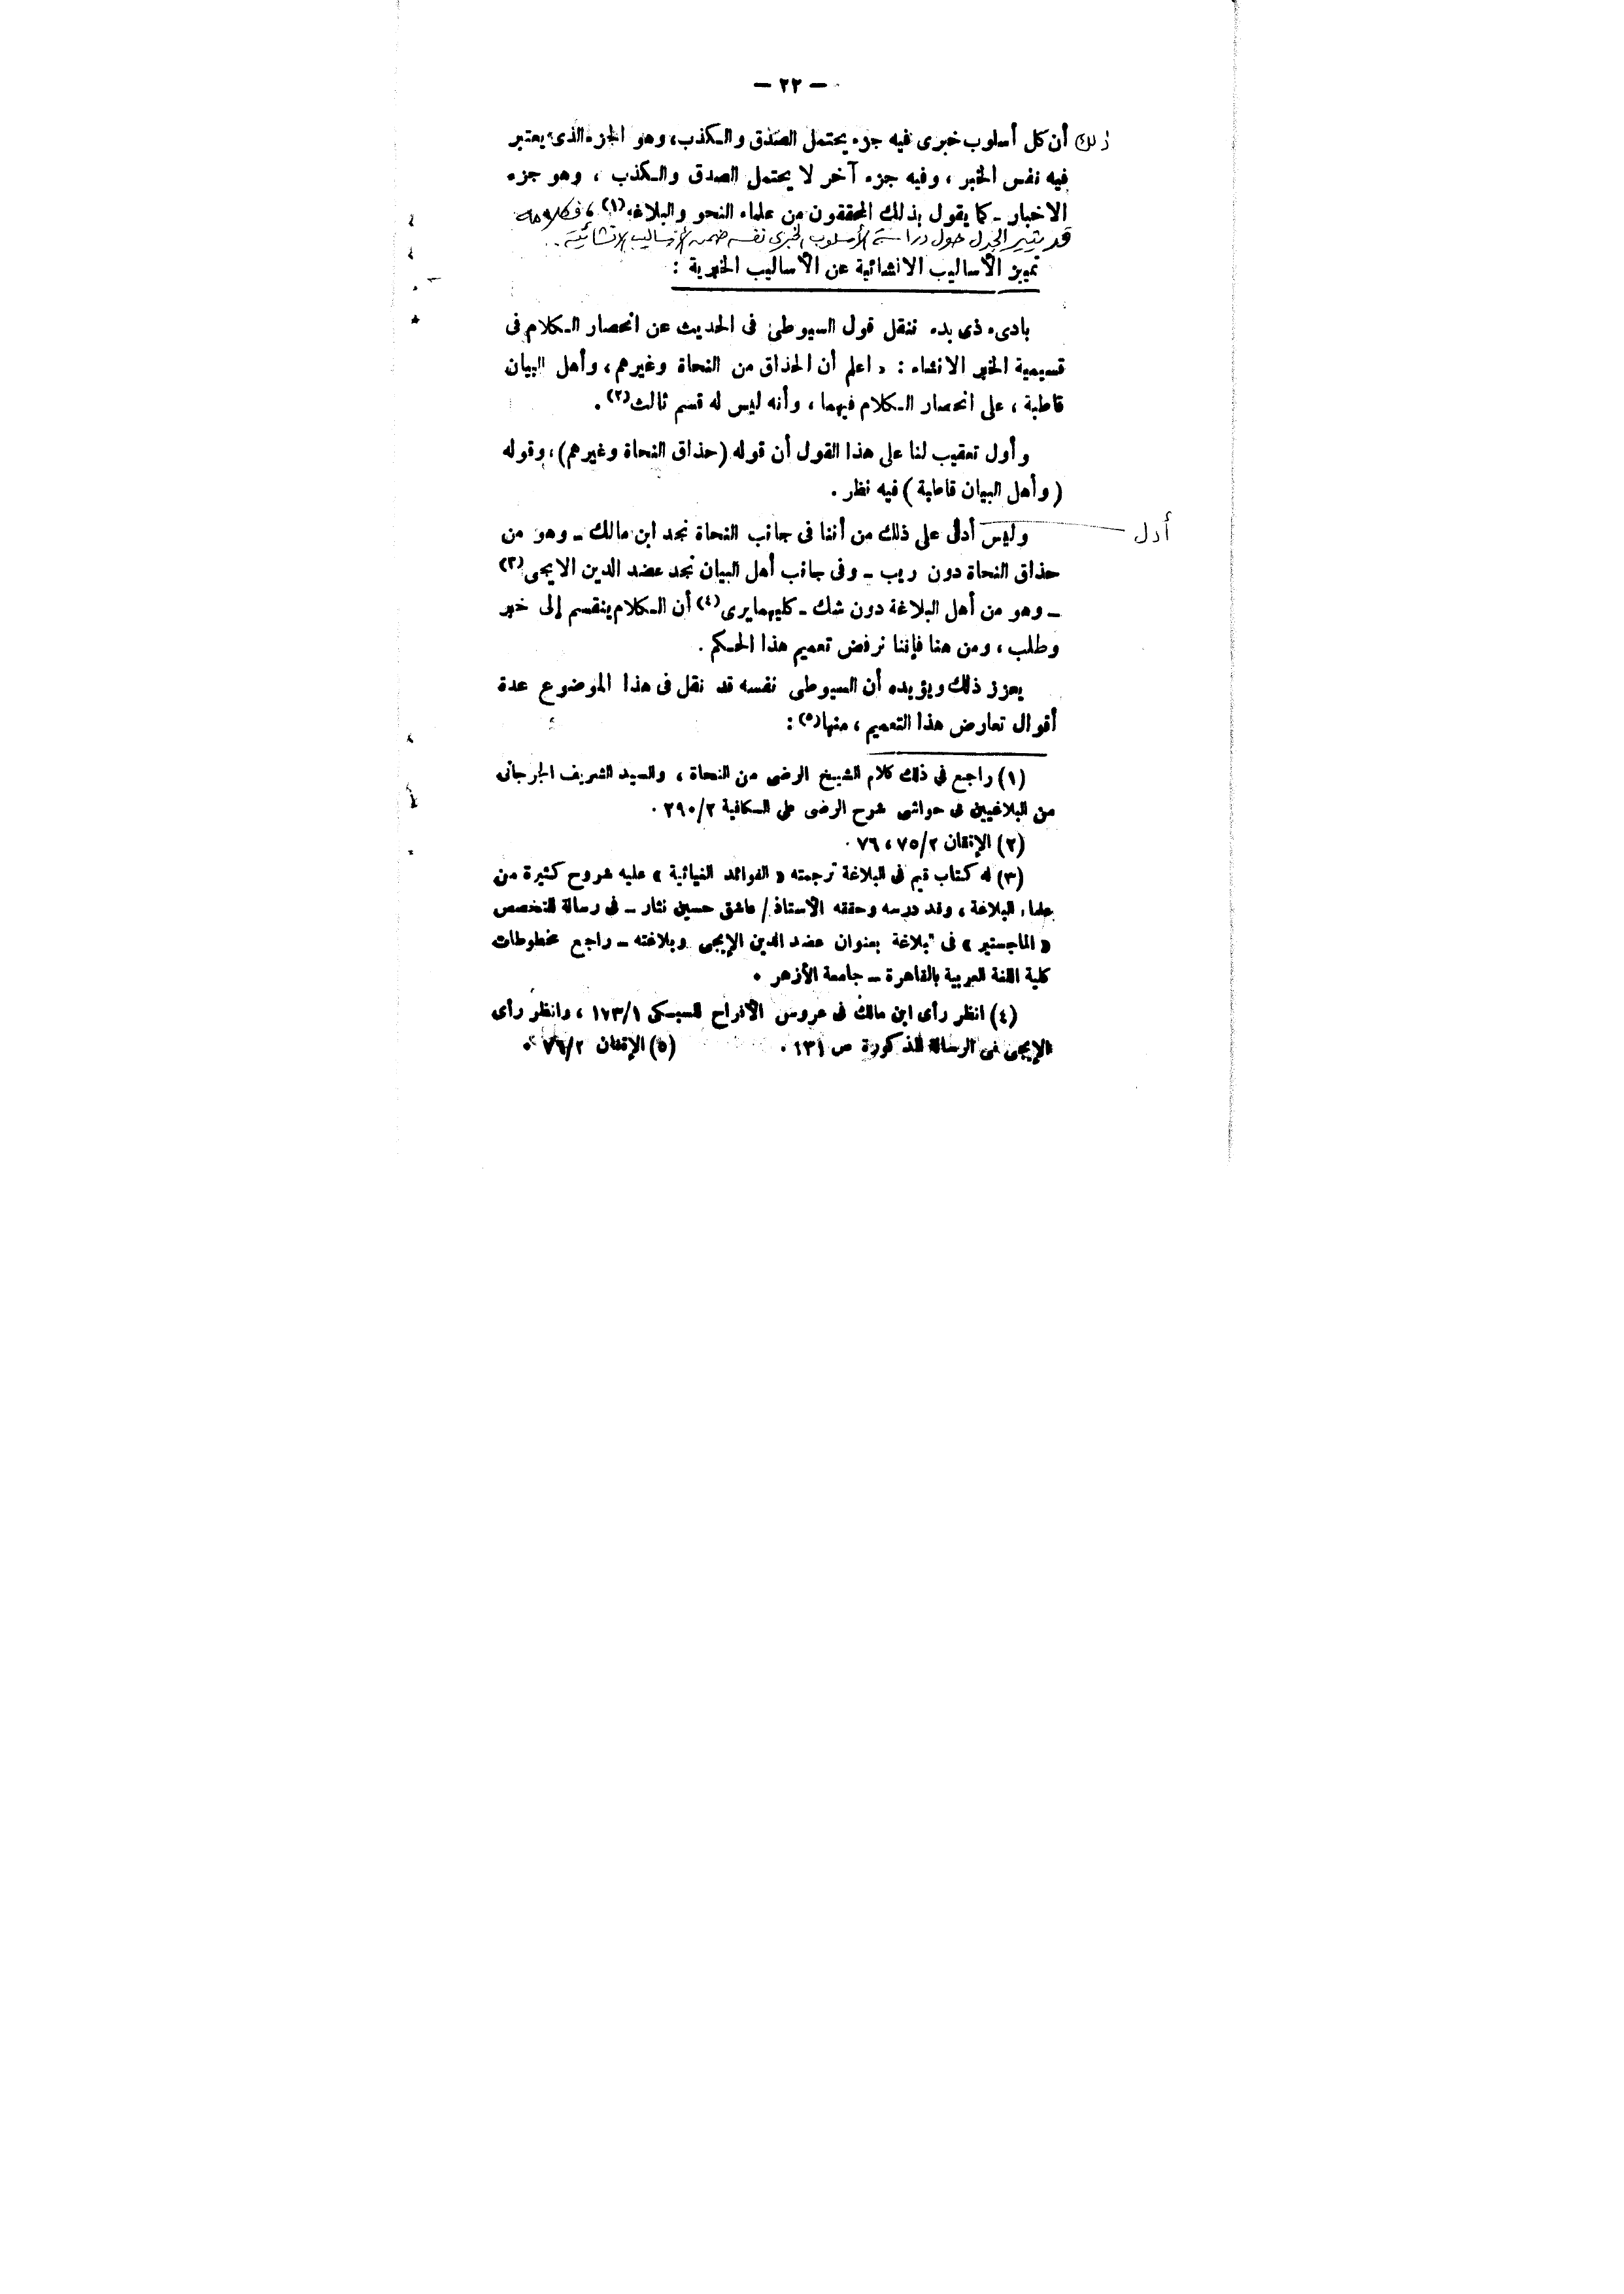 — ٢٢ —
ذلك أن كل أسلوب خبرى فيه جزء يحتمل الصدق والكذب، وهو الجزء الذى يعتبر
فيه نفس الخبر ، وفيه جزء آخر لا يحتمل الصدق والكذب ، وهو جزء
الاخبار ـ كما يقول بذلك المحققون من علماء النحو والبلاغة(١) ، فكلامه
قد يثير الجدل حول دراسة الأسلوب الخبرى نفسه ضمن الأساليب الإنشائية ..
تمييز الأساليب الانشائية عن الأساليب الخبرية :
بادىء ذى بدء ننقل قول السيوطى فى الحديث عن انحصار الكلام فى
قسيمية الخبر الانشاء : « اعلم أن الحذاق من النحاة وغيرهم، وأهل البيان
قاطبة ، على انحصار الكلام فيهما ، وأنه ليس له قسم ثالث(٢) .
وأول تعقيب لنا على هذا القول أن قوله (حذاق النحاة وغيرهم)، وقوله
( وأهل البيان قاطبة ) فيه نظر .
وليس أدل على ذلك من أننا فى جانب النحاة نجد ابن مالك ـ وهو من
أدل
حذاق النحاة دون ريب ـ وفى جانب أهل البيان نجد عضد الدين الايجى(٣)
ـ وهو من أهل البلاغة دون شك ـ كليهما يرى(٤) أن الكلام ينقسم إلى خبر
وطلب ، ومن هنا فإننا نرفض تعميم هذا الحكم .
يعزز ذلك ويؤيده أن السيوطى نفسه قد نقل فى هذا الموضوع عدة
أقوال تعارض هذا التعميم ، منها(٥) :
(١) راجع فى ذلك كلام الشيخ الرضى من النحاة ، والسيد الشريف الجرجانى
من البلاغيين فى حواشى شرح الرضى على الكافية ٢/٢٩٠ .
(٢) الإتقان ٢/٧٥ ، ٧٦ .
(٣) له كتاب قيم فى البلاغة ترجمته « الفوائد الغياثية » عليه شروح كثيرة من
علماء البلاغة ، وقد درسه وحققه الأستاذ/ عاشق حسين نثار ـ فى رسالة التخصص
« الماجستير » فى البلاغة بعنوان عضد الدين الإيجى وبلاغته ـ راجع مخطوطات
كلية اللغة العربية بالقاهرة ـ جامعة الأزهر .
(٤) انظر رأى ابن مالك فى عروس الأفراح للسبكى ١/١٧٣ ، وانظر رأى
الإيجى فى الرسالة المذكورة ص ١٣١ .
(٥) الإتقان ٢/٧٦ .